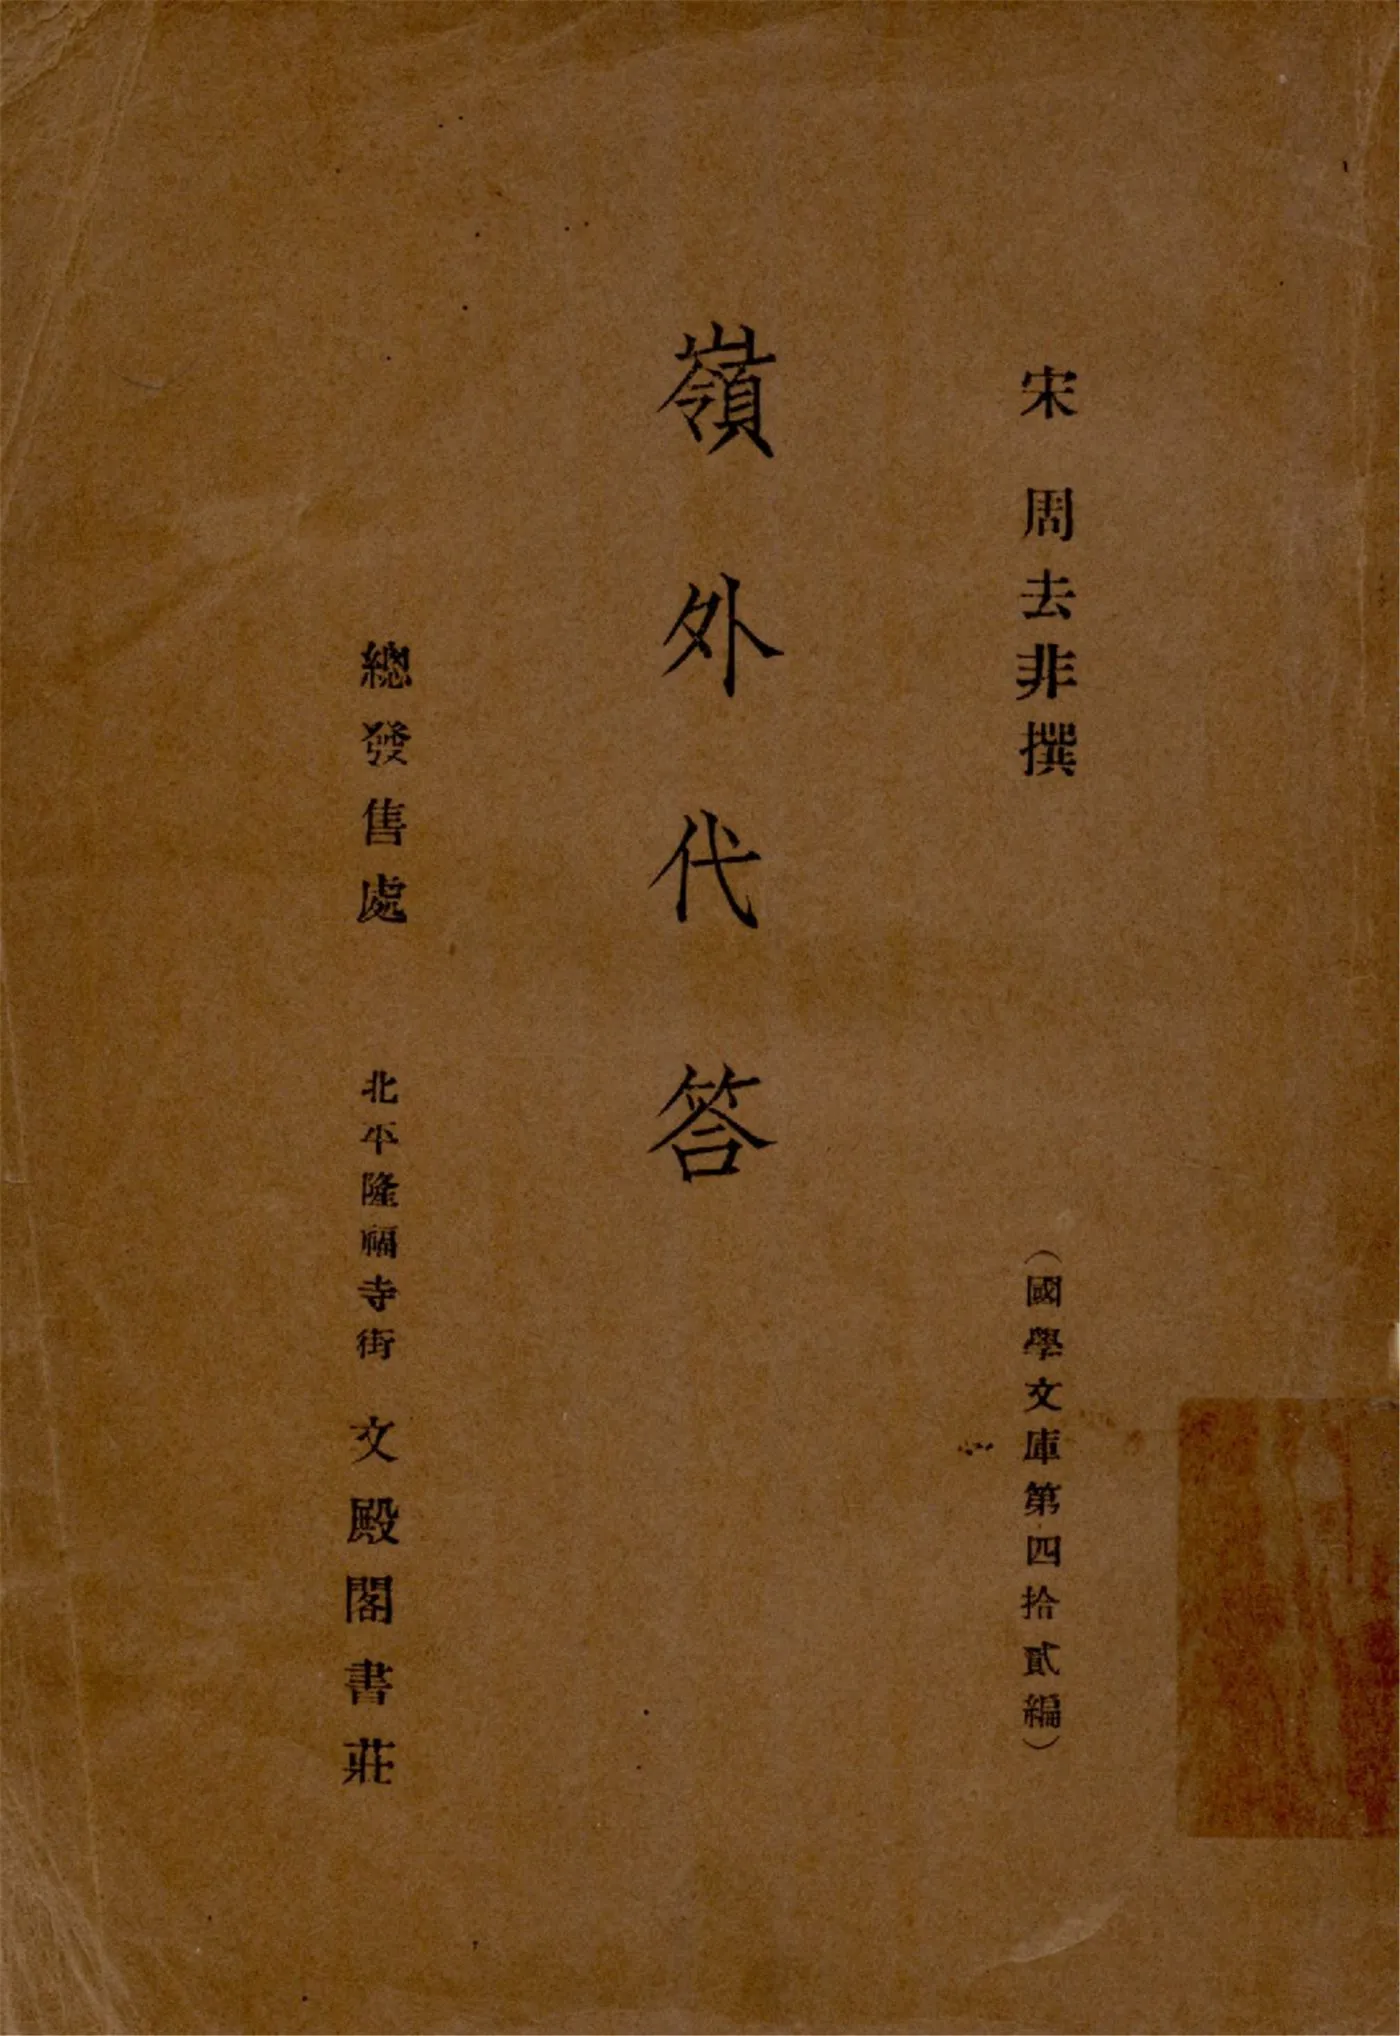 宋 周去非撰
（國學文庫第四拾貳編）
嶺外代答
總發售處 北平隆福寺街 文殿閣書莊